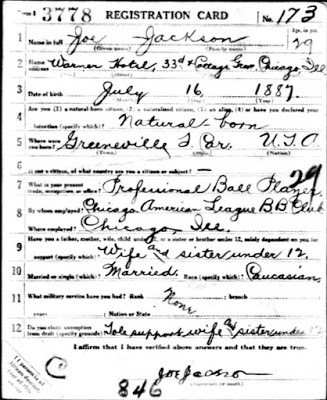 3778 REGISTRATION CARD No. 173
1 Name in full Joe Jackson Age, in yrs. 29
(Given name) (Family name)
2 Home address Warner Hotel, 33d & Cottage Grov, Chicago Ill
3 Date of birth July 16 1887.
4 Are you (1) a natural-born citizen, (2) a naturalized citizen, (3) an alien, (4) or have you declared your
intention (specify which)? Natural-born
5 Where were you born? Greeneville S. Car. U.S.A.
(Town) (State) (Nation)
6 If not a citizen, of what country are you a citizen or subject? —
7 What is your present trade, occupation, or office? Professional Ball Player 29
8 By whom employed? Chicago American League B.B. Club
Where employed? Chicago, Ill.
9 Have you a father, mother, wife, child under 12, or a sister or brother under 12, solely dependent on you for
support (specify which)? Wife and sister under 12.
10 Married or single (which)? Married. Race (specify which)? Caucasian
11 What military service have you had? Rank None branch
years Nation or State
12 Do you claim exemption from draft (specify grounds)? Sole support wife and sister under 12
I affirm that I have verified above answers and that they are true.
Joe Jackson
846